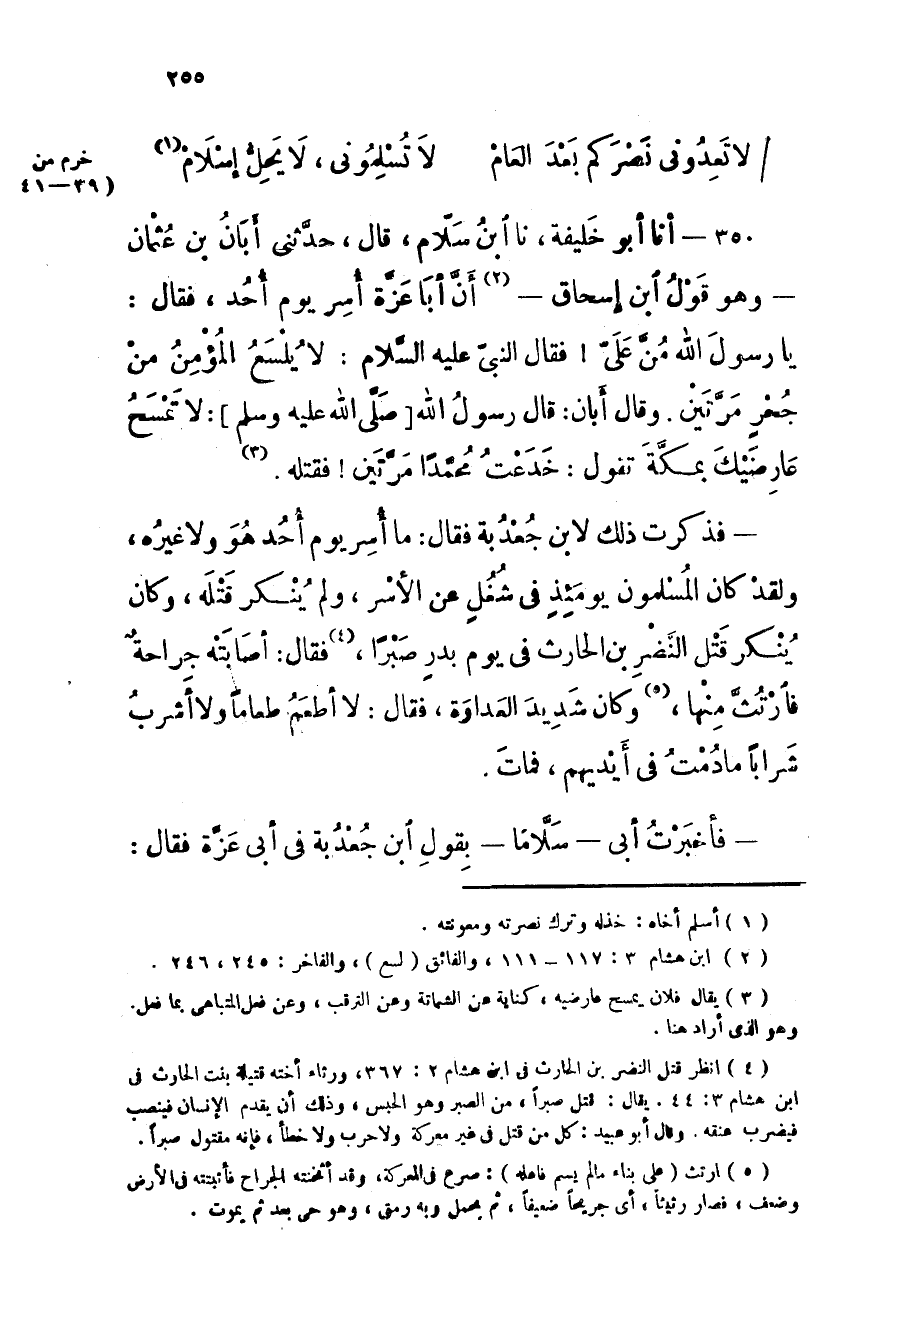 ٢٥٥
/ لا تَعِدُونى نَصْرَكم بَعْدَ العَامْ لَا تُسْلِمُونى ، لَا يَحِلُّ إسْلَامْ (١)
خرم من
(٣٩—٤١
٣٥٠ — أنا أبو خَليفة ، نا ابنُ سَلّام ، قال ، حدّثنى أَبَانُ بن عُثْمان
— وهو قَوْلُ ابن إسحاق — (٢) أَنَّ أبَا عَزَّة أُسِر يوم أُحُد ، فقال :
يا رسولَ الله مُنَّ عَلَىّ ! فقال النبىّ عليه السَّلام : لا يُلْسَعُ المُؤْمِنُ منْ
جُحْرٍ مَرَّتَيْن . وقال أَبان: قال رسولُ الله [صَلَّى الله عليه وسلم] : لا تَمْسَحُ
عَارِضَيْكَ بمكَّةَ تقول : خَدَعْتُ مُحمّدًا مَرَّتَين ! فقتله . (٣)
— فذكرت ذلك لابن جُعْدُبة فقال: ما أُسِر يوم أُحُد هُوَ ولا غيرُه ،
ولقدْ كان المُسْلمون يومَئِذٍ فى شُغُلٍ عن الأَسْر ، ولم يُنْكر قَتْلَه ، وكان
يُنْكر قَتْل النَّضْرِ بن الحارث فى يوم بدرٍ صَبْرًا ، (٤) فقال: أصَابَتْه جِراحةٌ
فارْتُثَّ مِنْها ، (٥) وكان شَدِيدَ العَداوَة ، فقال : لا أطعَمُ طعاماً ولا أَشربُ
شَراباً ما دُمْتُ فى أَيْديهم ، فماتَ .
— فأخبَرْتُ أبى — سَلَّامًا — بِقولِ ابن جُعْدُبة فى أبى عَزَّة فقال :
(١) أسلم أخاه : خذله وترك نصرته ومعونته .
(٢) ابن هشام ٣ : ١١٧ — ١١١ ، والفائق (لسع) ، والفاخر : ٢٤٥ ، ٢٤٦ .
(٣) يقال فلان يمسح عارضيه ، كناية عن الشماتة وعن الترقب ، وعن فعل المتباهى بما فعل.
وهو الذى أراد هنا .
(٤) انظر قتل النضر بن الحارث فى ابن هشام ٢ : ٣٦٧، ورثاء أخته قتيلة بنت الحارث فى
ابن هشام ٣: ٤٤ . يقال : قتل صبراً ، من الصبر وهو الحبس ، وذلك أن يقدم الإنسان فينصب
فيضرب عنقه . وقال أبو عبيد : كل من قتل فى غير معركة ولا حرب ولا خطأ ، فإنه مقتول صبراً .
(٥) ارتث (على بناء مالم يسم فاعله) : صرع فى المعركة، وقد أثخنته الجراح فأثبتته فى الأرض
وضعف ، فصار رثيثاً ، أى جريحاً ضعيفاً ، ثم يحمل وبه رمق ، وهو حى بعد ثم يموت .